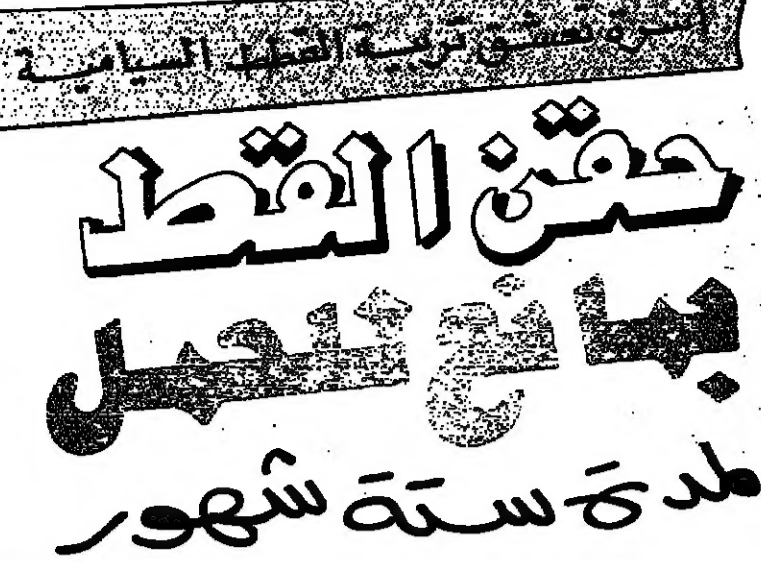 أسرة تعشق تربية القطط السيامية
حقن القط
بمانع للحمل
لمدة ستة شهور